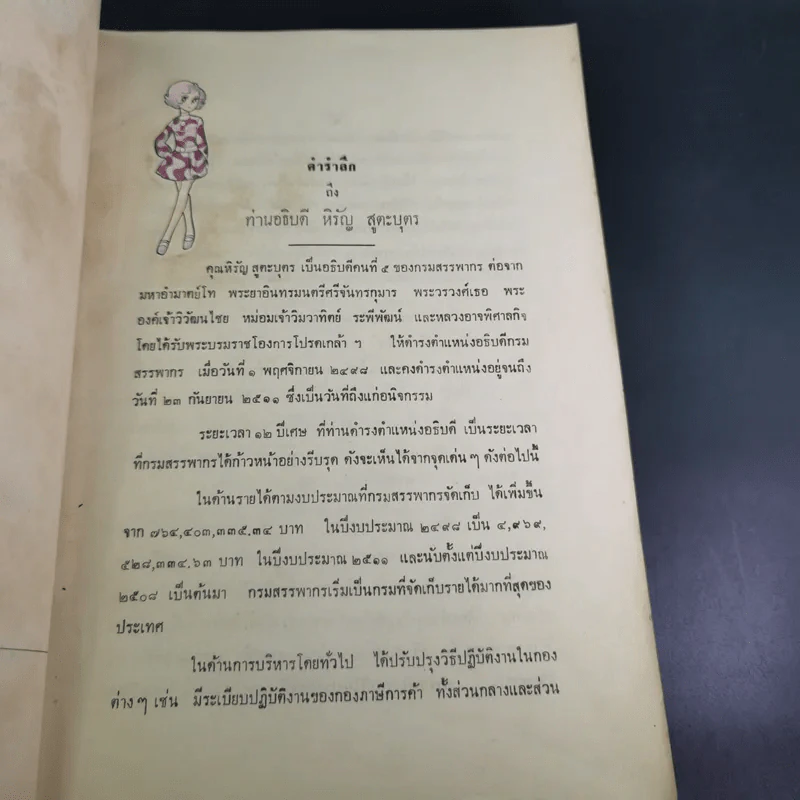 คำรำลึก
ถึง
ท่านอธิบดี หิรัญ สูตะบุตร
คุณหิรัญ สูตะบุตร เป็นอธิบดีคนที่ ๕ ของกรมสรรพากร ต่อจาก
มหาอำมาตย์โท พระยาอินทรมนตรีศรีจันทรกุมาร พระวรวงศ์เธอ พระ
องค์เจ้าวิวัฒนไชย หม่อมเจ้าวิมวาทิตย์ ระพีพัฒน์ และหลวงอาจพิศาลกิจ
โดยได้รับพระบรมราชโองการโปรดเกล้า ฯ ให้ดำรงตำแหน่งอธิบดีกรม
สรรพากร เมื่อวันที่ ๑ พฤศจิกายน ๒๔๙๘ และคงดำรงตำแหน่งอยู่จนถึง
วันที่ ๒๓ กันยายน ๒๕๑๑ ซึ่งเป็นวันที่ถึงแก่อนิจกรรม
ระยะเวลา ๑๒ ปีเศษ ที่ท่านดำรงตำแหน่งอธิบดี เป็นระยะเวลา
ที่กรมสรรพากรได้ก้าวหน้าอย่างรีบรุด ดังจะเห็นได้จากจุดเด่น ๆ ดังต่อไปนี้
ในด้านรายได้ตามงบประมาณที่กรมสรรพากรจัดเก็บ ได้เพิ่มขึ้น
จาก ๗๖๔,๔๐๓,๓๓๕.๓๔ บาท ในปีงบประมาณ ๒๔๙๘ เป็น ๔,๙๖๙,
๕๒๘,๓๓๔.๖๓ บาท ในปีงบประมาณ ๒๕๑๑ และนับตั้งแต่ปีงบประมาณ
๒๕๐๘ เป็นต้นมา กรมสรรพากรเริ่มเป็นกรมที่จัดเก็บรายได้มากที่สุดของ
ประเทศ
ในด้านการบริหารโดยทั่วไป ได้ปรับปรุงวิธีปฏิบัติงานในกอง
ต่าง ๆ เช่น มีระเบียบปฏิบัติงานของกองภาษีการค้า ทั้งส่วนกลางและส่วน